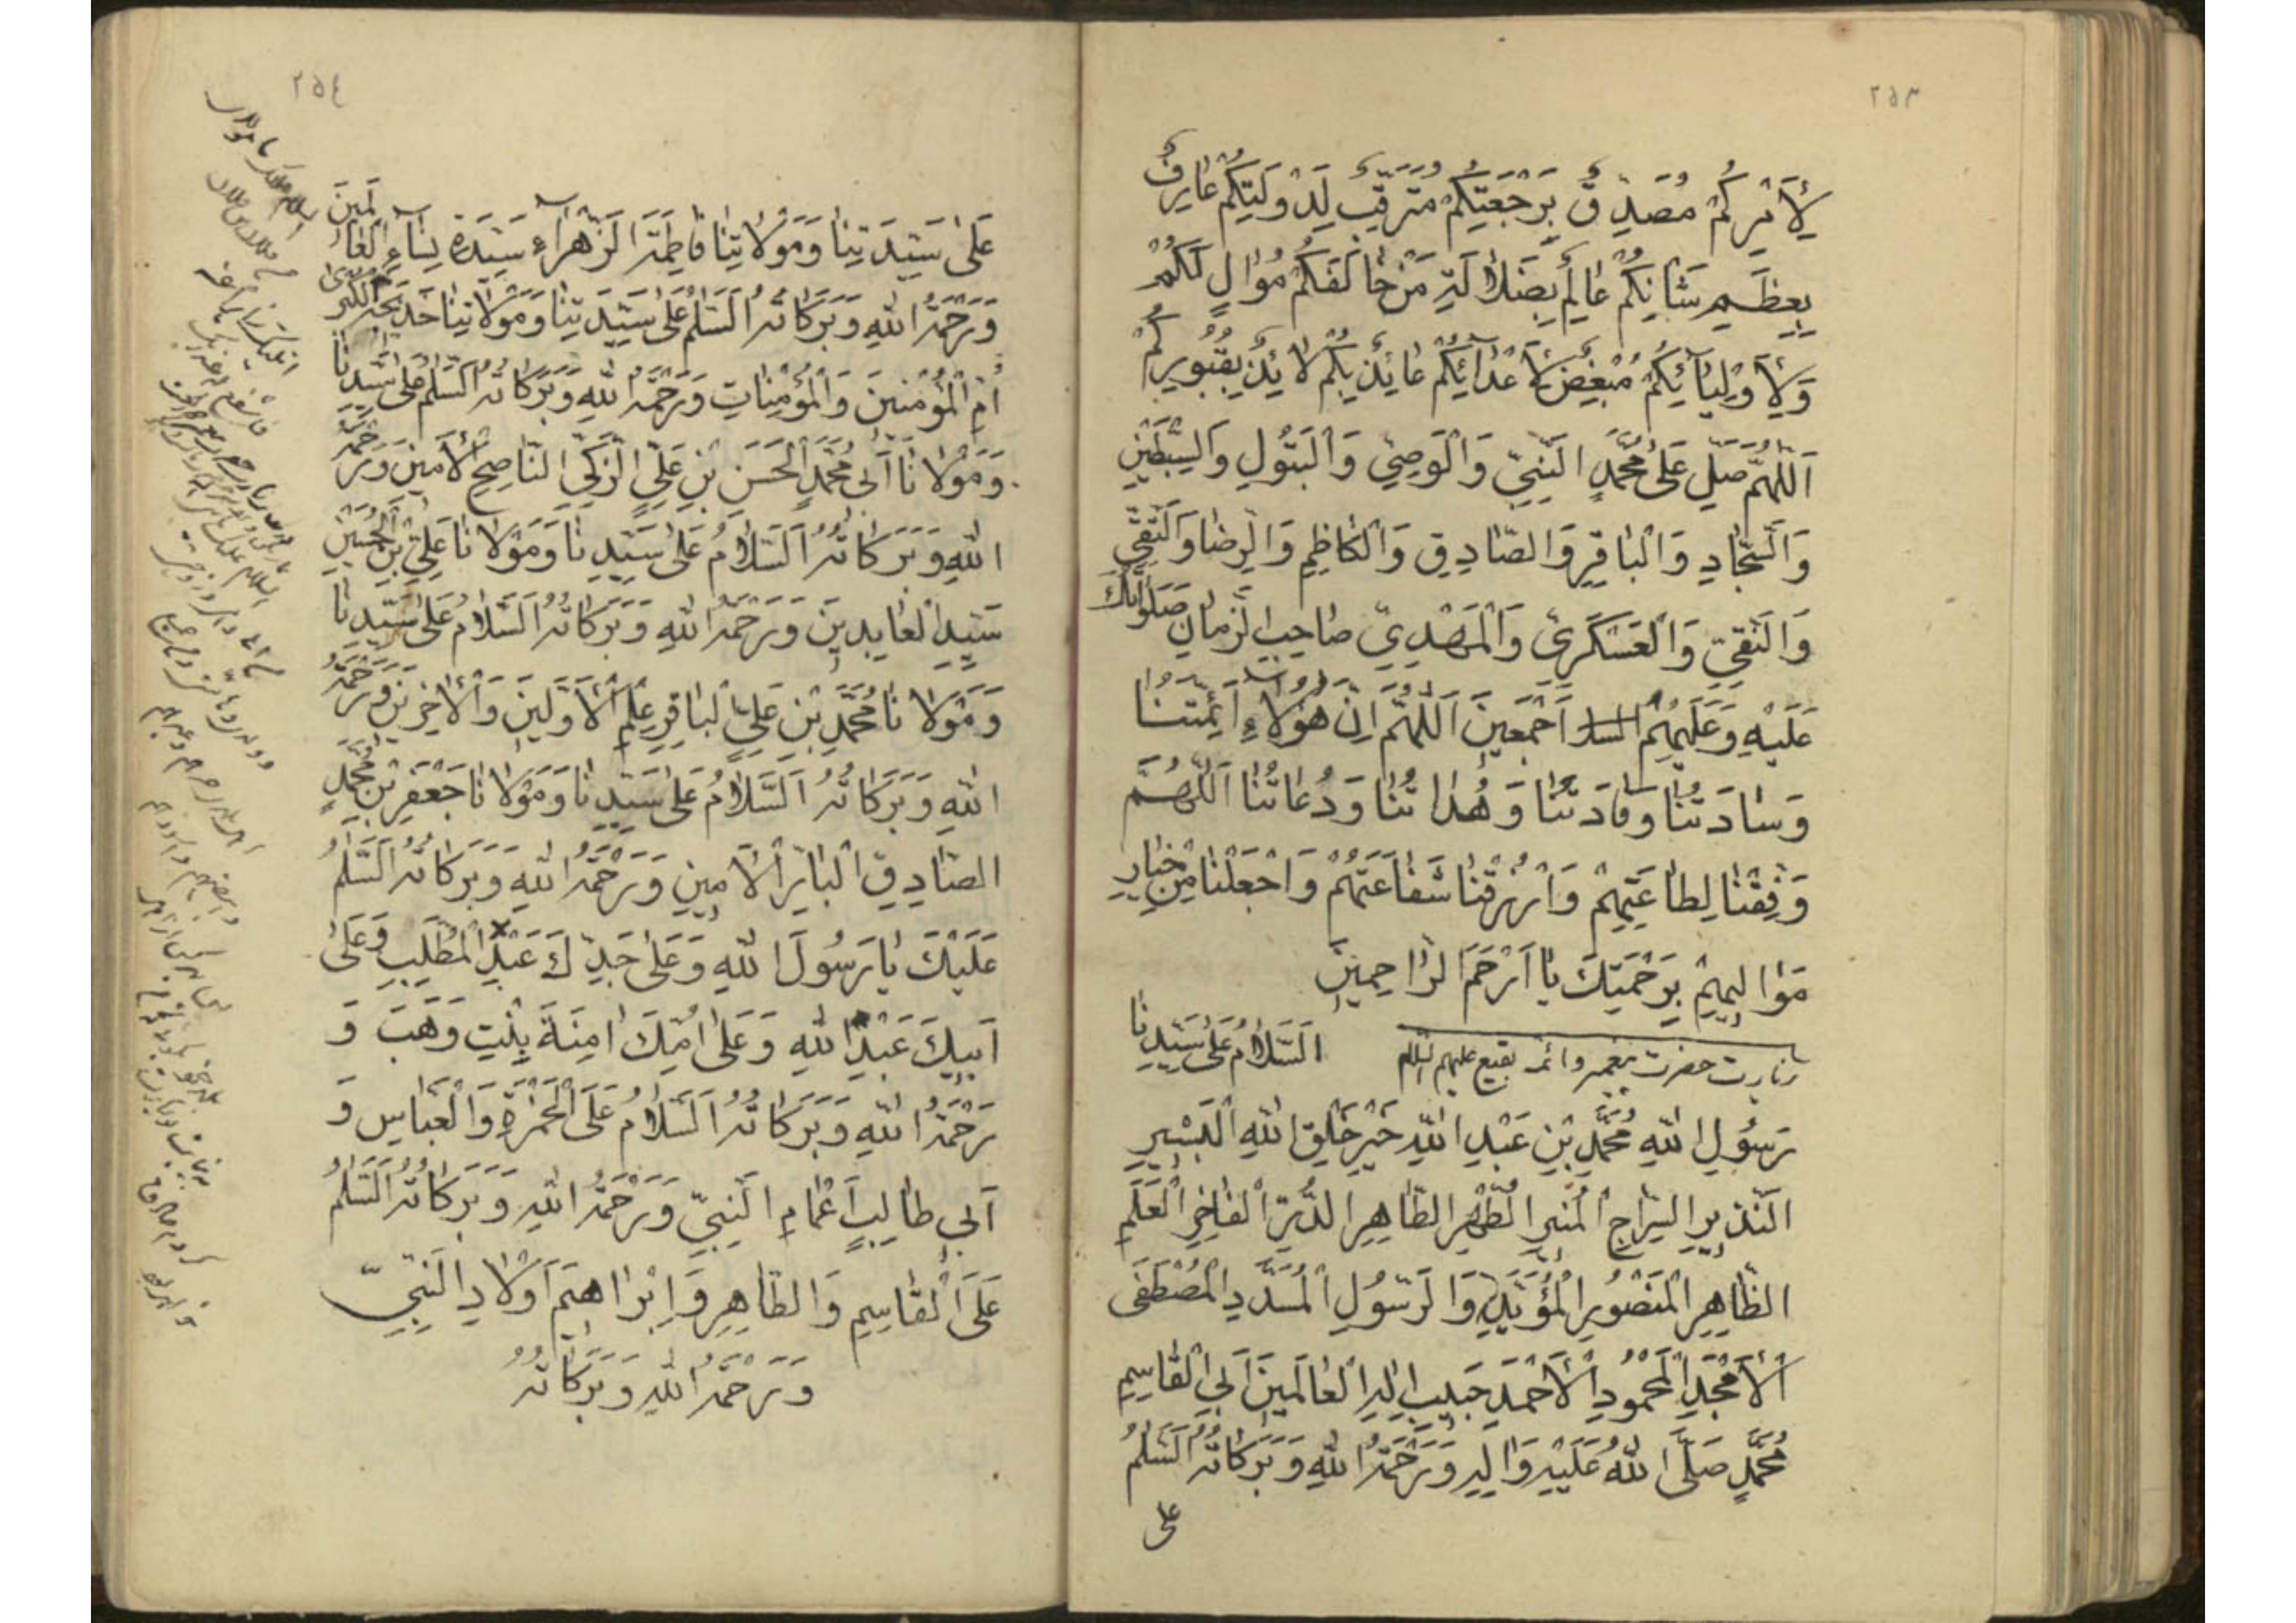 ٢٥٣
لِأَمْرِكُمْ مُصَدِّقٌ بِرَجْعَتِكُمْ مُتَرَقِّبٌ لِدَوْلَتِكُمْ عَارِفٌ
بِعِظَمِ شَأْنِكُمْ عَالِمٌ بِضَلَالَةِ مَنْ خَالَفَكُمْ مُوَالٍ لَكُمْ
وَلِأَوْلِيَآئِكُمْ مُبْغِضٌ لِأَعْدَآئِكُمْ عَائِذٌ بِكُمْ لَائِذٌ بِقُبُورِكُمْ
اَللّٰهُمَّ صَلِّ عَلىٰ مُحَمَّدٍ النَّبِيِّ وَالْوَصِيِّ وَالْبَتُولِ وَالسِّبْطَيْنِ
وَالسَّجَّادِ وَالْبَاقِرِ وَالصَّادِقِ وَالْكَاظِمِ وَالرِّضَا وَالتَّقِيِّ
وَالنَّقِيِّ وَالْعَسْكَرِيِّ وَالْمَهْدِيِّ صَاحِبِ الزَّمَانِ صَلَوَاتُكَ
عَلَيْهِ وَعَلَيْهِمُ اَجْمَعِينَ اَللّٰهُمَّ اِنَّ هٰؤُلَاءِ اَئِمَّتُنَا
وَسَادَتُنَا وَقَادَتُنَا وَهُدَاتُنَا وَدُعَاتُنَا اَللّٰهُمَّ
وَفِّقْنَا لِطَاعَتِهِمْ وَارْزُقْنَا شَفَاعَتَهُمْ وَاجْعَلْنَا مِنْ خِيَارِ
مَوَالِيهِمْ بِرَحْمَتِكَ يَا اَرْحَمَ الرَّاحِمِينَ
زيارت حضرت پيغمبر وائمه بقيع عليهم السلام اَلسَّلَامُ عَلىٰ سَيِّدِنَا
رَسُولِ اللهِ مُحَمَّدِ بْنِ عَبْدِ اللهِ خَيْرِ خَلْقِ اللهِ الْبَشِيرِ
النَّذِيرِ السِّرَاجِ الْمُنِيرِ الطُّهْرِ الطَّاهِرِ الدُّرِّ الْفَاخِرِ الْعَلَمِ
الظَّاهِرِ الْمَنْصُورِ الْمُؤَيَّدِ وَالرَّسُولِ الْمُسَدَّدِ الْمُصْطَفَى
الْأَمْجَدِ الْمَحْمُودِ الْأَحْمَدِ حَبِيبِ اِلٰهِ الْعَالَمِينَ اَبِي الْقَاسِمِ
مُحَمَّدٍ صَلَّى اللهُ عَلَيْهِ وَآلِهِ وَرَحْمَةُ اللهِ وَبَرَكَاتُهُ اَلسَّلٰمُ
على
٢٥٤
عَلىٰ سَيِّدَتِنَا وَمَوْلَاتِنَا فَاطِمَةَ الزَّهْرَآءِ سَيِّدَةِ نِسَآءِ الْعَالَمِينَ
وَرَحْمَةُ اللهِ وَبَرَكَاتُهُ اَلسَّلٰمُ عَلىٰ سَيِّدَتِنَا وَمَوْلَاتِنَا خَدِيجَةِ الْكُبْرىٰ
اُمِّ الْمُؤْمِنِينَ وَالْمُؤْمِنَاتِ وَرَحْمَةُ اللهِ وَبَرَكَاتُهُ اَلسَّلٰمُ عَلىٰ سَيِّدِنَا
وَمَوْلَانَا اَبِي مُحَمَّدٍ الْحَسَنِ بْنِ عَلِيٍّ الزَّكِيِّ النَّاصِحِ الْأَمِينِ وَرَحْمَةُ
اللهِ وَبَرَكَاتُهُ اَلسَّلَامُ عَلىٰ سَيِّدِنَا وَمَوْلَانَا عَلِيِّ بْنِ الْحُسَيْنِ
سَيِّدِ الْعَابِدِينَ وَرَحْمَةُ اللهِ وَبَرَكَاتُهُ اَلسَّلَامُ عَلىٰ سَيِّدِنَا
وَمَوْلَانَا مُحَمَّدِ بْنِ عَلِيٍّ الْبَاقِرِ عِلْمِ الْأَوَّلِينَ وَالْآخِرِينَ وَرَحْمَةُ
اللهِ وَبَرَكَاتُهُ اَلسَّلَامُ عَلىٰ سَيِّدِنَا وَمَوْلَانَا جَعْفَرِ بْنِ مُحَمَّدٍ
الصَّادِقِ الْبَارِّ الْأَمِينِ وَرَحْمَةُ اللهِ وَبَرَكَاتُهُ اَلسَّلٰمُ
عَلَيْكَ يَا رَسُولَ اللهِ وَعَلىٰ جَدِّكَ عَبْدِ الْمُطَّلِبِ وَعَلىٰ
اَبِيكَ عَبْدِ اللهِ وَعَلىٰ اُمِّكَ اٰمِنَةَ بِنْتِ وَهَبَ وَ
رَحْمَةُ اللهِ وَبَرَكَاتُهُ اَلسَّلَامُ عَلَى الْحَمْزَةِ وَالْعَبَّاسِ وَ
اَبِي طَالِبٍ اَعْمَامِ النَّبِيِّ وَرَحْمَةُ اللهِ وَبَرَكَاتُهُ اَلسَّلٰمُ
عَلَى الْقَاسِمِ وَالطَّاهِرِ وَاِبْرَاهِيمَ اَوْلَادِ النَّبِيِّ
وَرَحْمَةُ اللهِ وَبَرَكَاتُهُ